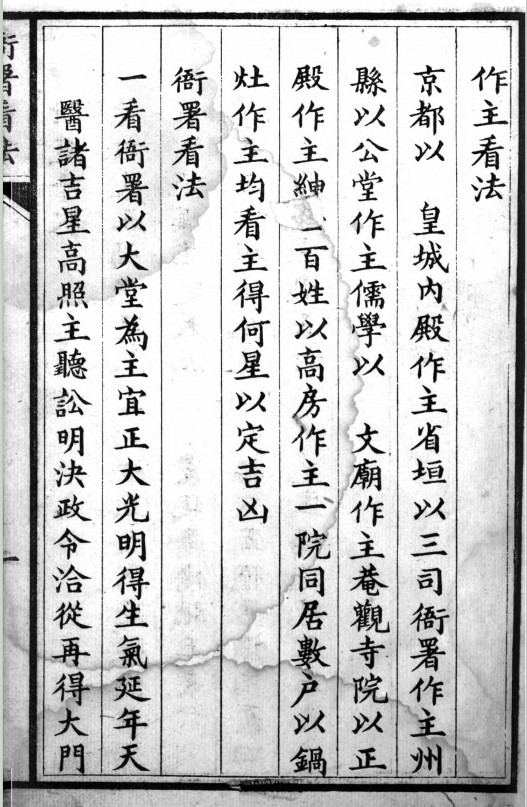 作主看法
京都以　皇城内殿作主省垣以三司衙署作主州
縣以公堂作主儒學以　文廟作主菴觀寺院以正
殿作主紳百姓以高房作主一院同居數户以鍋
灶作主均看主得何星以定吉凶
衙署看法
一看衙署以大堂為主宜正大光明得生氣延年天
醫諸吉星高照主聽訟明決政令洽從再得大門
衙署看法